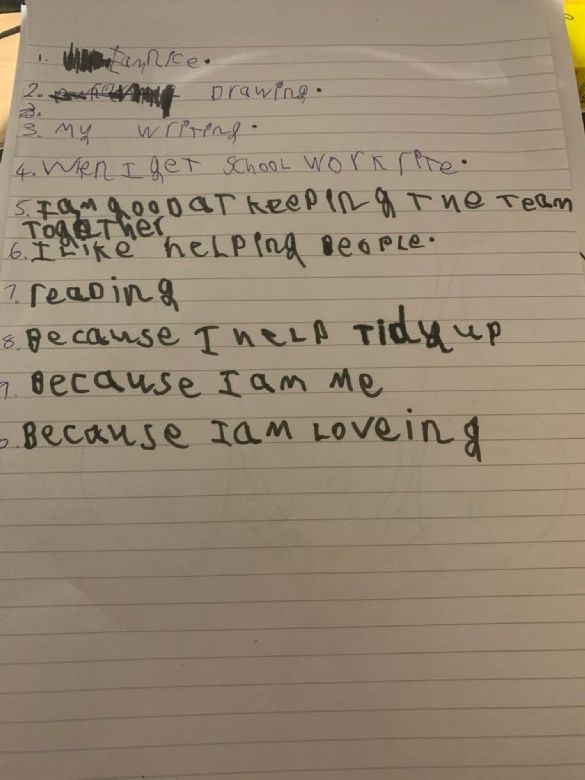 1. I am nice.
2. Drawing.
2.
3. My writing.
4. Wen I get school work rite.
5. I am good at keeping the team
together
6. I like helping people.
7. reading
8. Because I help tidy up
9. Because I am me
Because I am loveing